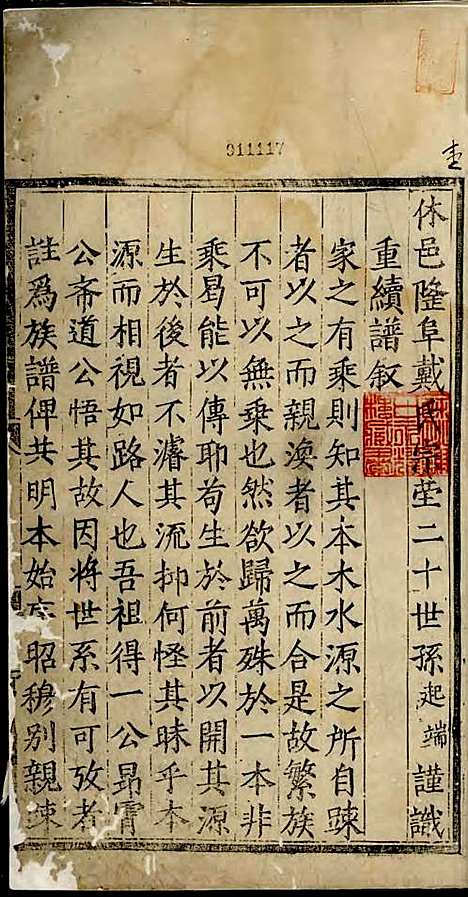 休邑隆阜戴氏宗茔二十世孫起端謹識
重續譜叙
家之有乘則知其本木水源之所自踈
者以之而親渙者以之而合是故繁族
不可以無乗也然欲歸萬殊於一本非
乗曷能以傳耶苟生於前者以開其源
生於後者不濬其流抑何怪其昧乎本
源而相視如路人也吾祖得一公昴霄
公斎道公悟其故因將世系有可攷者
註爲族譜俾其明本始昭穆别親踈
911117